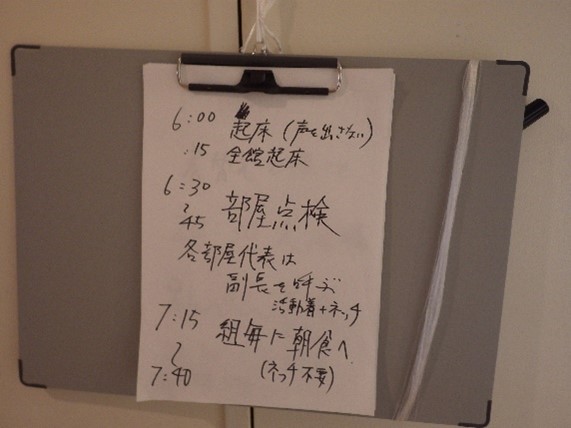 6:00 起床(声を出さない)
:15 全館起床
6:30 部屋点検
〜
45
各部屋代表は
副長を呼ぶ
活動着+ネッチ
7:15 組毎に朝食へ
〜
7:40 (ネッチ不要)